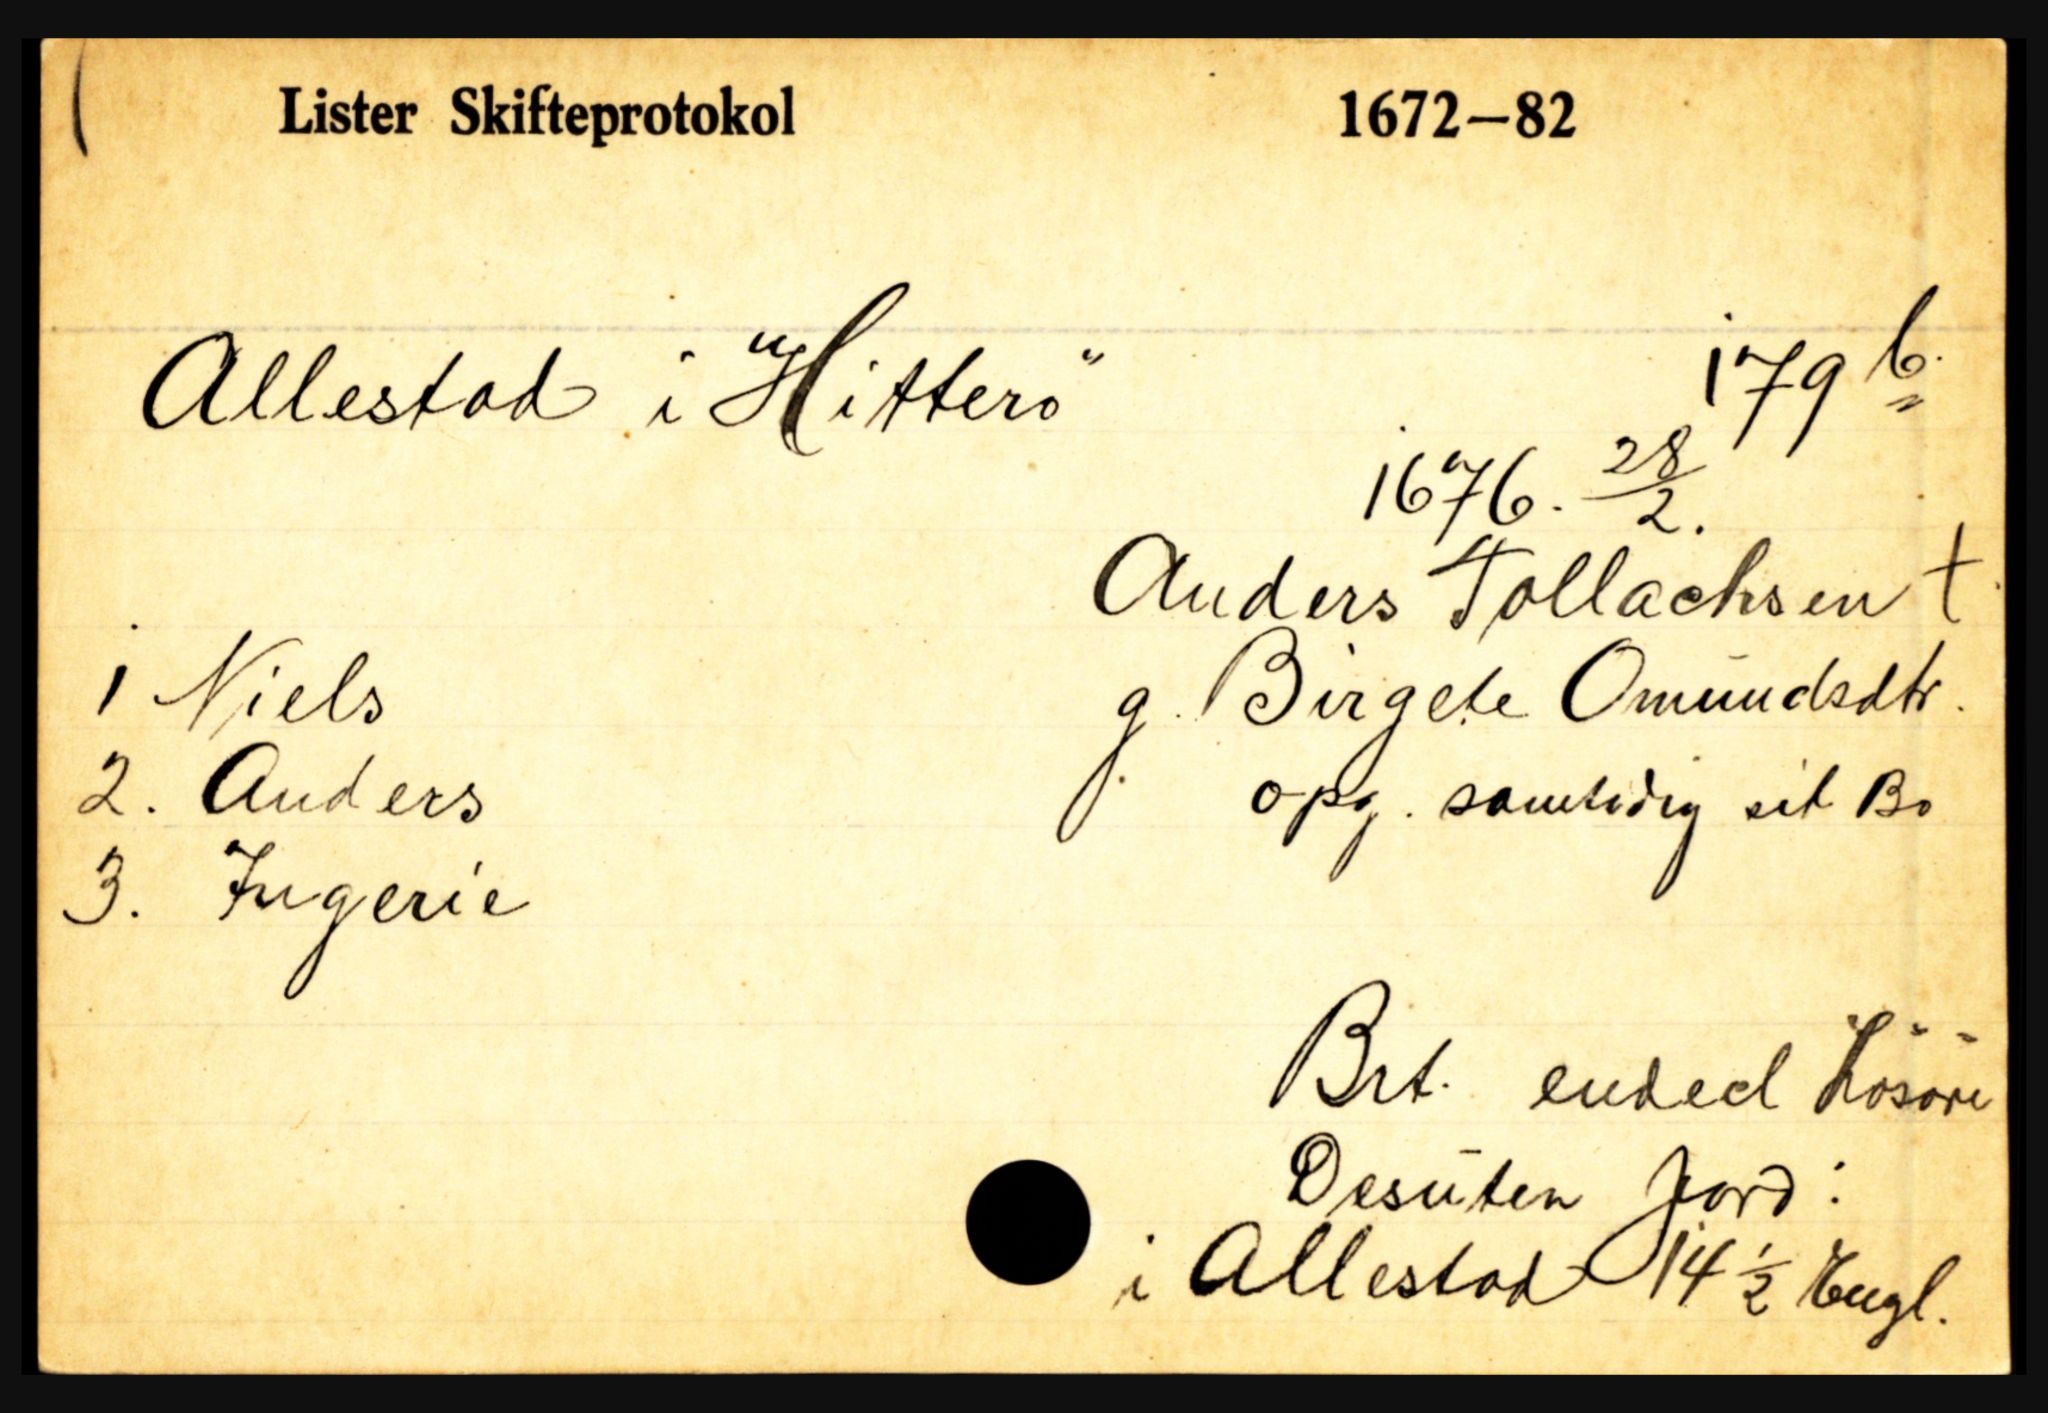 Lister Skifteprotokol 1672—82
Allestad i "Hitterø" 179 b.
1676. 28/2.
Anders Tollachsen †
g. Birgete Omūndsdtr.
opg. samtidig sit Bo
1 Niels
2. Anders
3. Ingerie
Brt. ended Løsøre
Desūten Jord:
i Allestad 14 1/2 Engl.